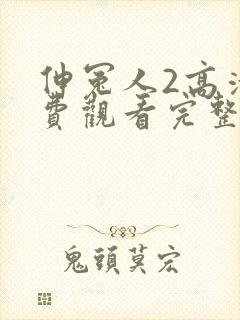 伸冤人2高清
費觀看完整
鬼頭莫宏